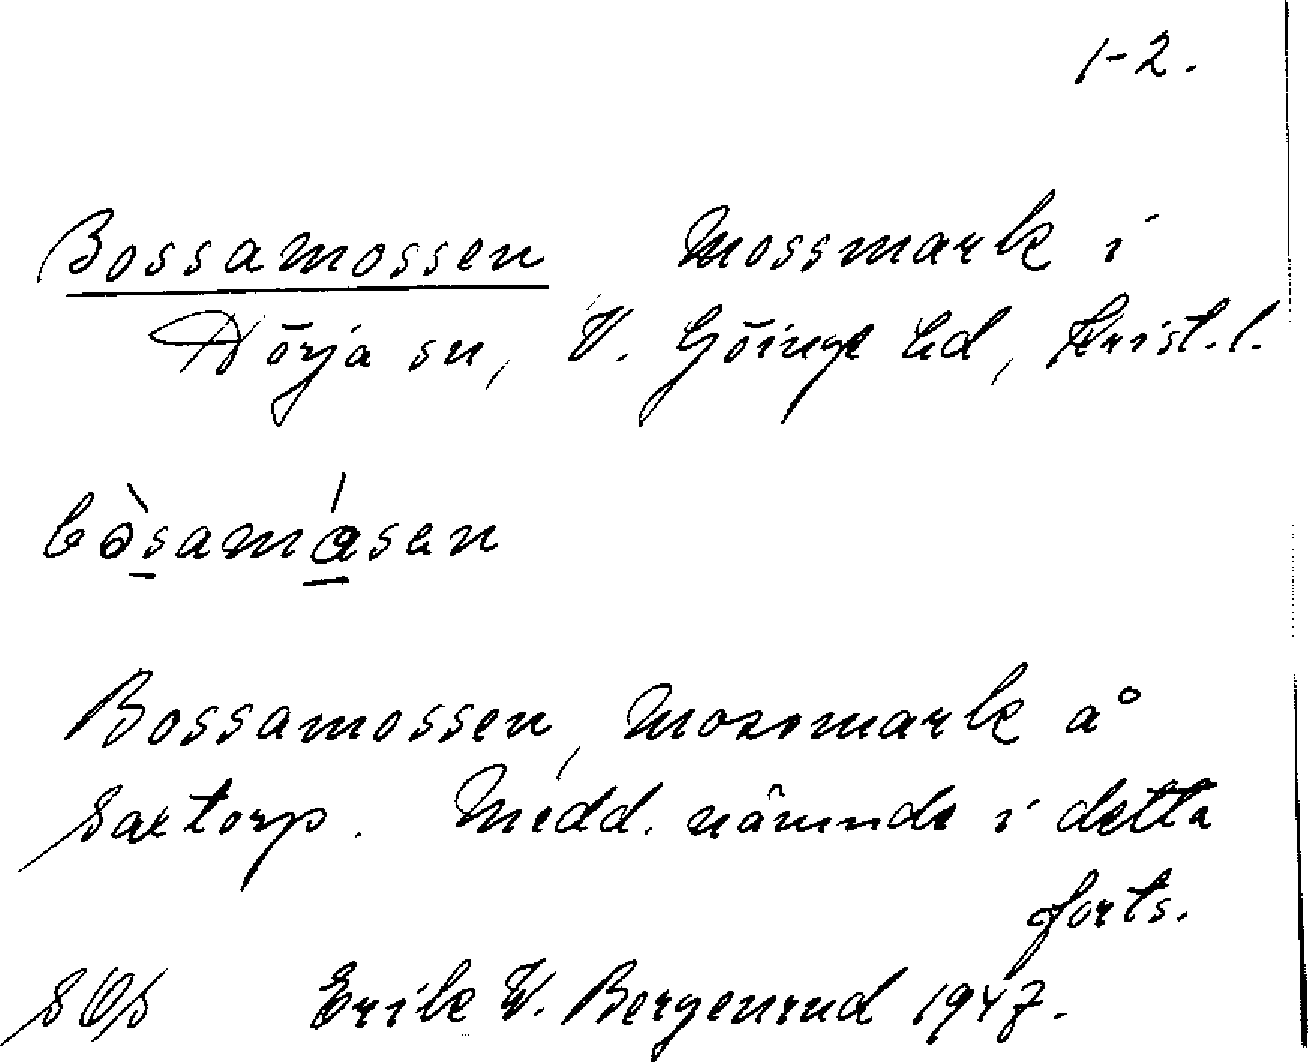 1-2.
Bossamossen Mossmark i
Nörja sn, V. Göinge hd, Krist. l.
bòsamásen
Bossamossen, Mossmark å
Saxtorp. Medd. nämnde i detta
forts.
SOS Erik W. Bergenrud 1947.